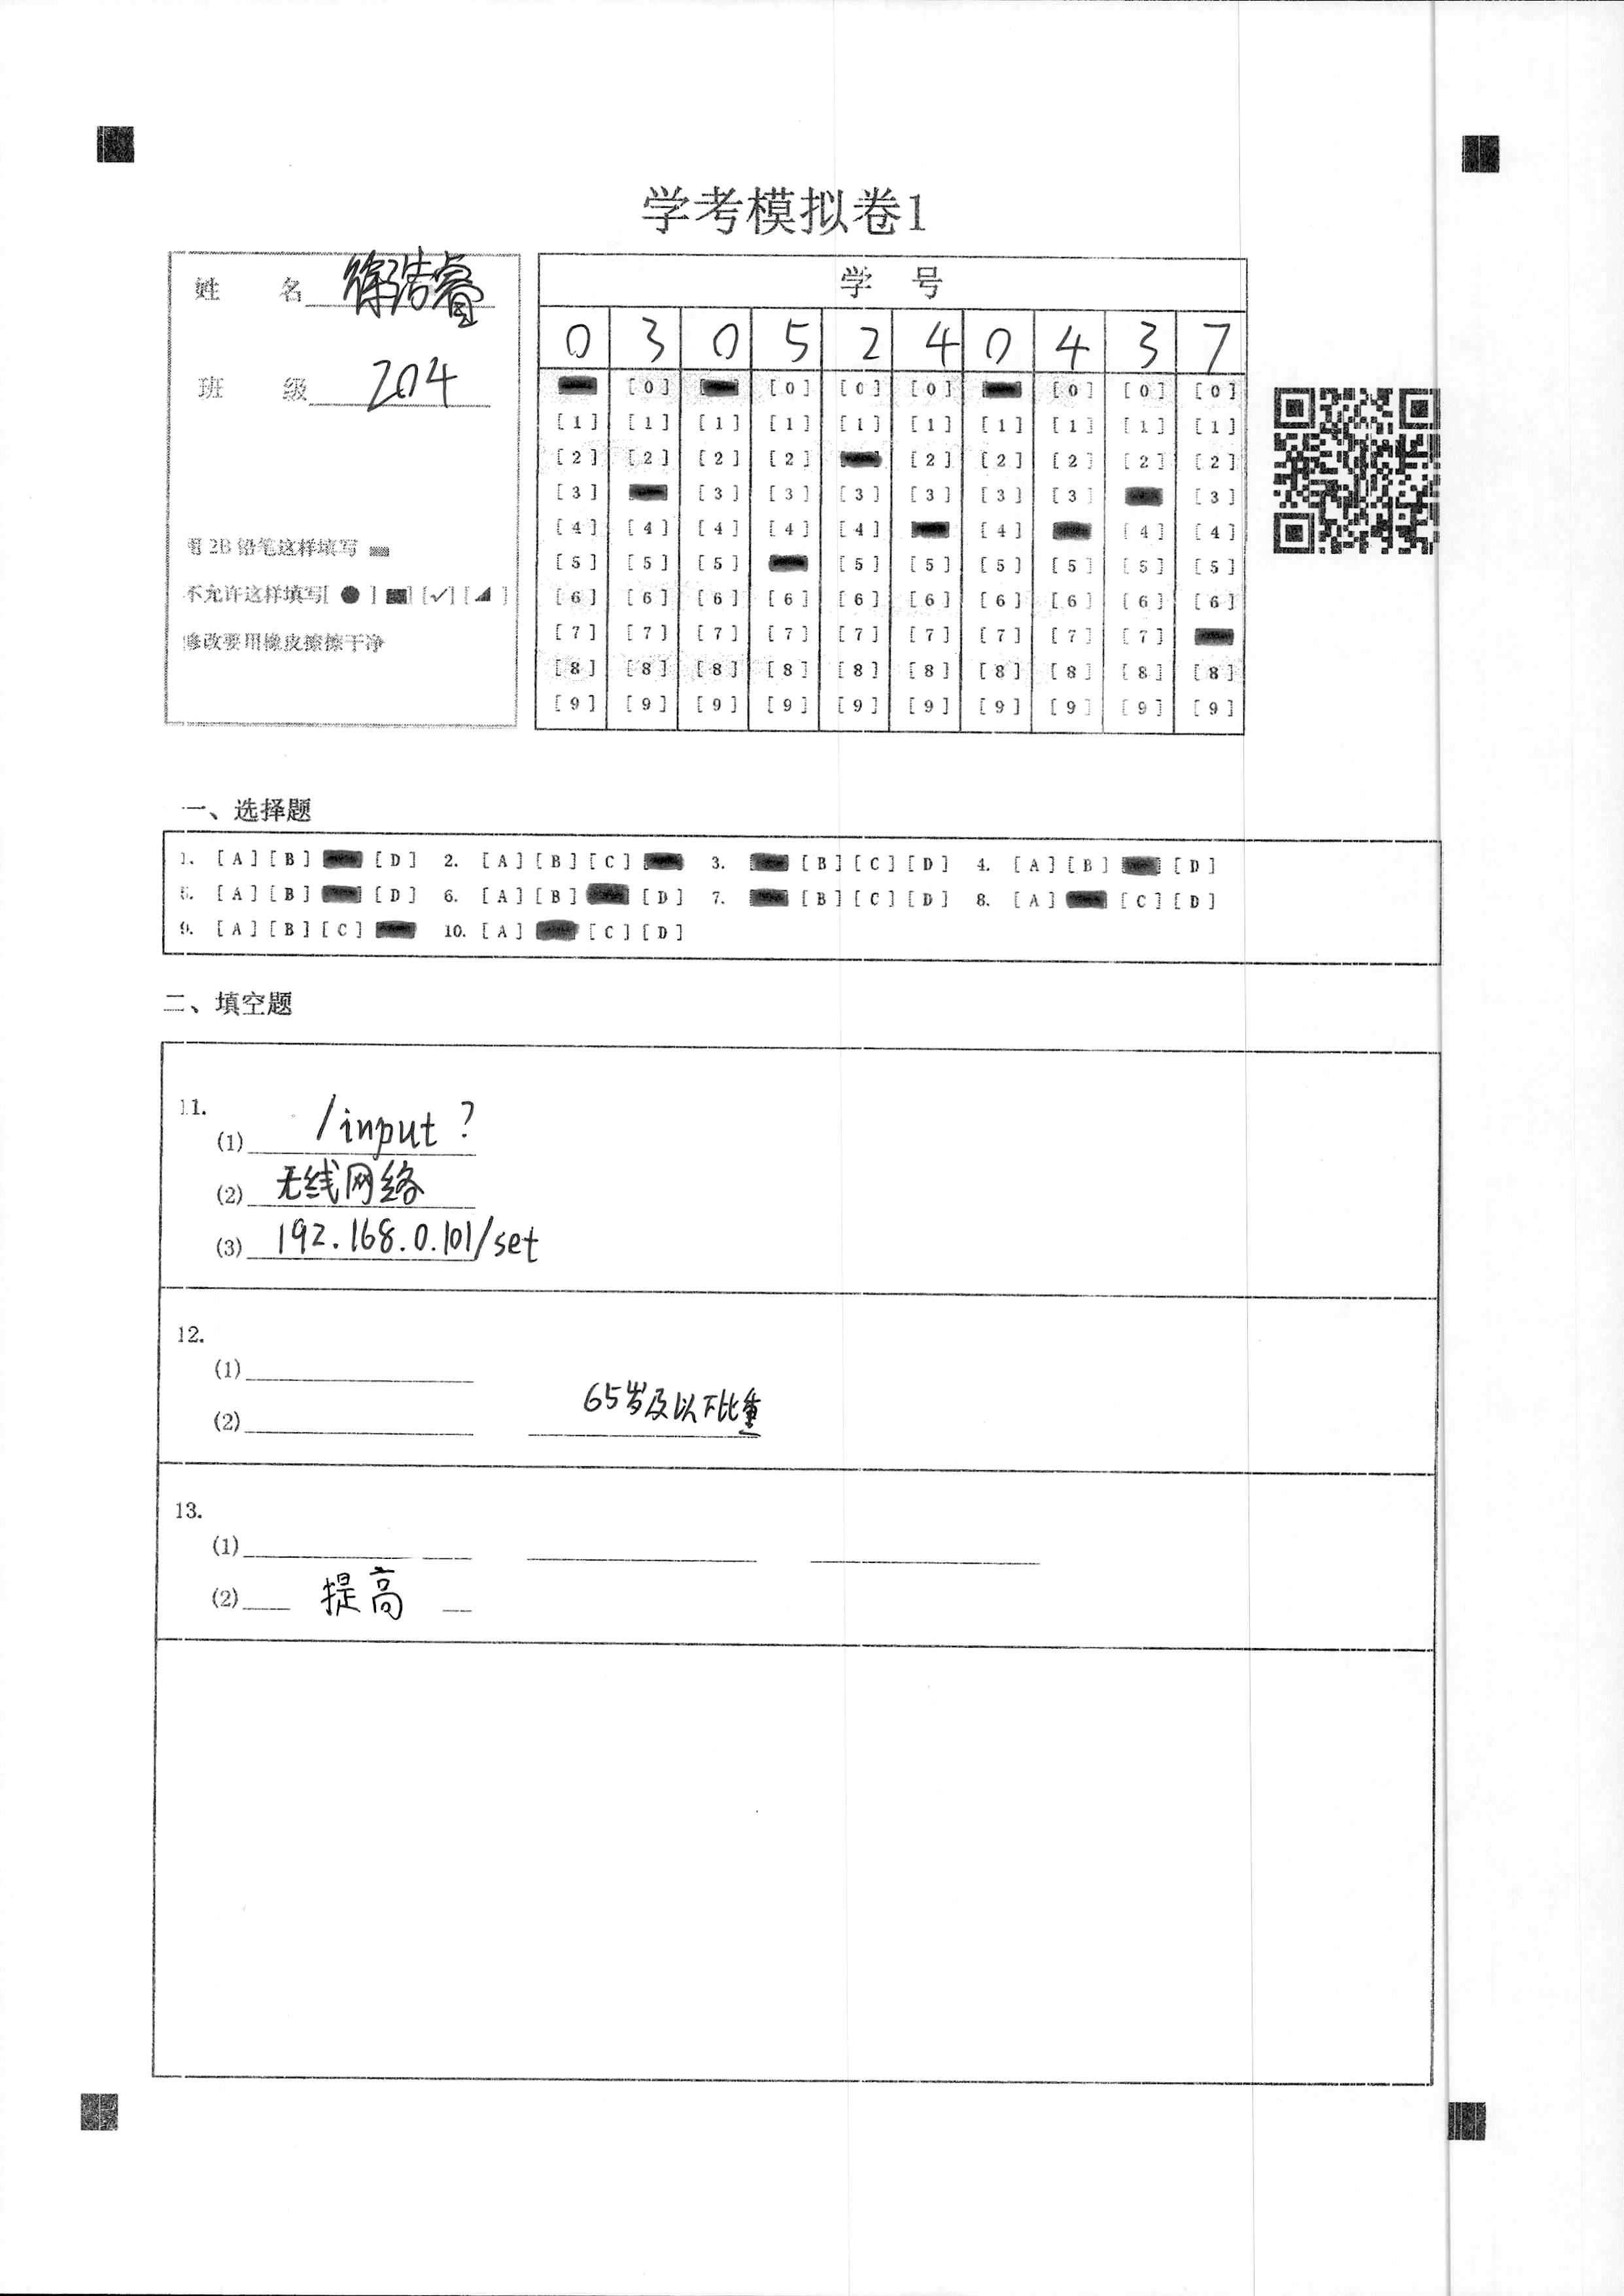 学考模拟卷1
姓 名 徐浩睿
班 级 204
用 2B 铅笔这样填写
不允许这样填写[ ● ] [■] [✓] [◢ ]
修改要用橡皮擦擦干净
学 号
0 3 0 5 2 4 0 4 3 7
[0] [0] [0] [0] [0] [0] [0]
[1] [1] [1] [1] [1] [1] [1] [1] [1] [1]
[2] [2] [2] [2] [2] [2] [2] [2] [2]
[3] [3] [3] [3] [3] [3] [3] [3]
[4] [4] [4] [4] [4] [4] [4] [4]
[5] [5] [5] [5] [5] [5] [5] [5] [5]
[6] [6] [6] [6] [6] [6] [6] [6] [6] [6]
[7] [7] [7] [7] [7] [7] [7] [7] [7]
[8] [8] [8] [8] [8] [8] [8] [8] [8] [8]
[9] [9] [9] [9] [9] [9] [9] [9] [9] [9]
一、选择题
1. [A] [B] [D] 2. [A] [B] [C] 3. [B] [C] [D] 4. [A] [B] [D]
5. [A] [B] [D] 6. [A] [B] [D] 7. [B] [C] [D] 8. [A] [C] [D]
9. [A] [B] [C] 10. [A] [C] [D]
二、填空题
11.
(1) /input?
(2) 无线网络
(3) 192.168.0.101/set
12.
(1)
(2) 65岁及以下比重
13.
(1)
(2) 提高